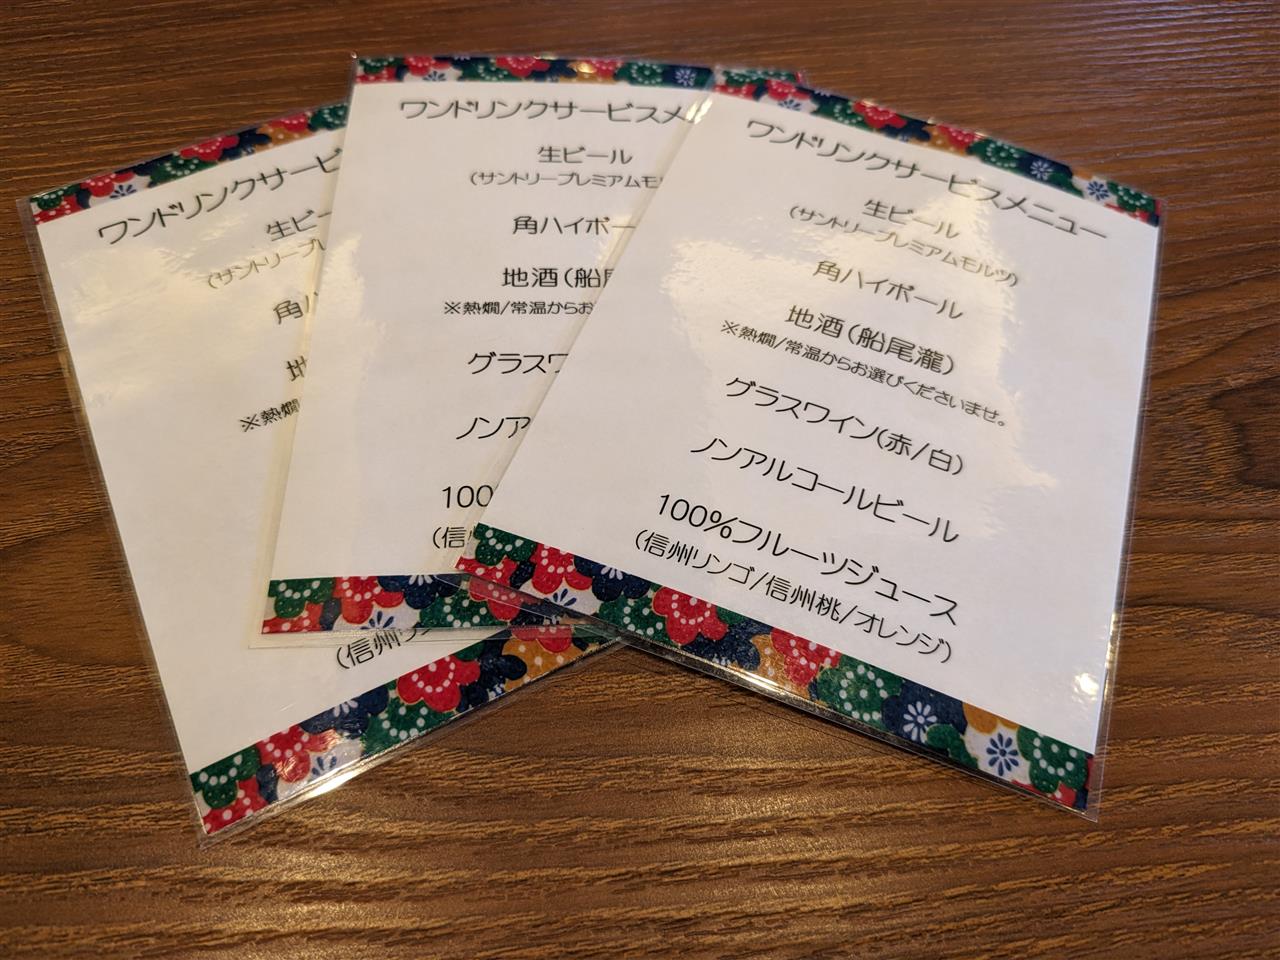 ワンドリンクサービ
生ビー
(サントリープレ
角ハ
地
※熱燗
(信州リン
ワンドリンクサービスメ
生ビール
(サントリープレミアムモル
角ハイボー
地酒(船尾
※熱燗/常温からお
グラスワ
ノンア
100
(信
ワンドリンクサービスメニュー
生ビール
(サントリープレミアムモルツ)
角ハイボール
地酒(船尾瀧)
※熱燗/常温からお選びくださいませ。
グラスワイン(赤/白)
ノンアルコールビール
100%フルーツジュース
(信州リンゴ/信州桃/オレンジ)